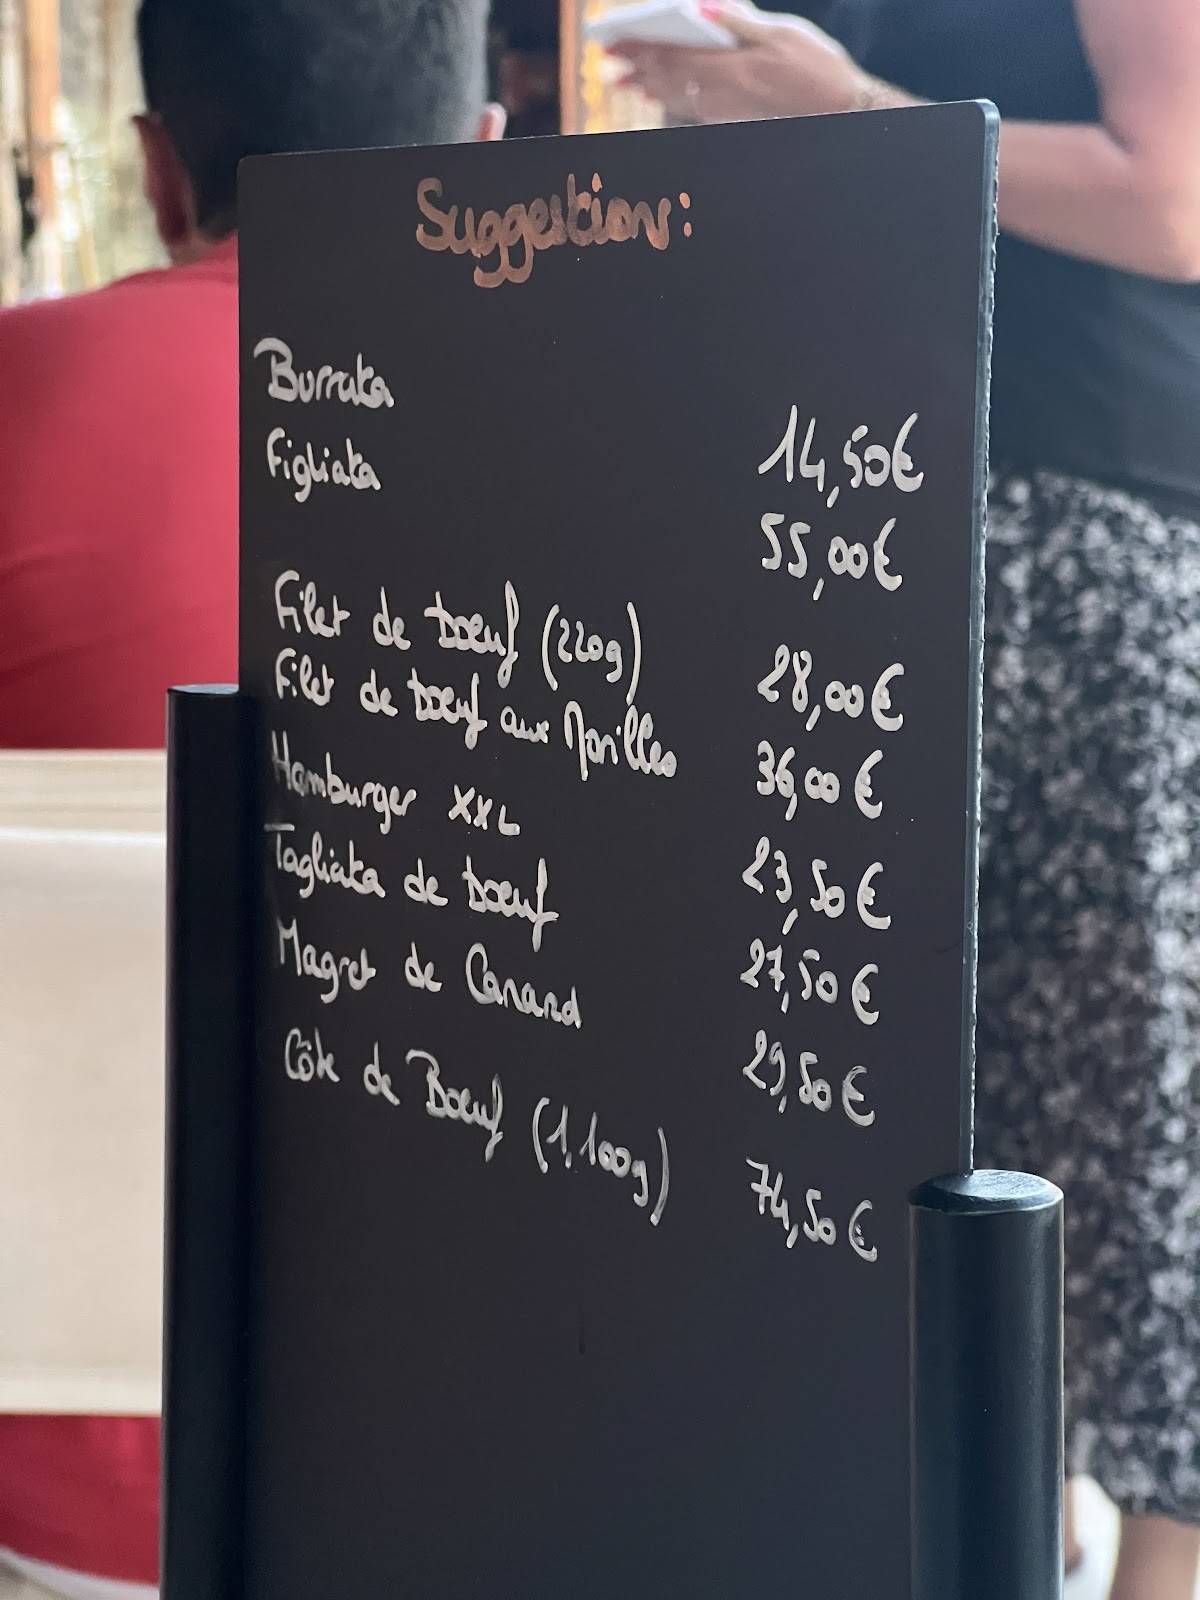 Suggestion:
Burrata 14,50€
Figliata 55,00€
Filet de boeuf (220g) 28,00€
Filet de boeuf aux Morilles 36,00€
Hamburger XXL 23,50€
Tagliata de boeuf 27,50€
Magret de Canard 29,50€
Côte de Boeuf (1,100g) 74,50€